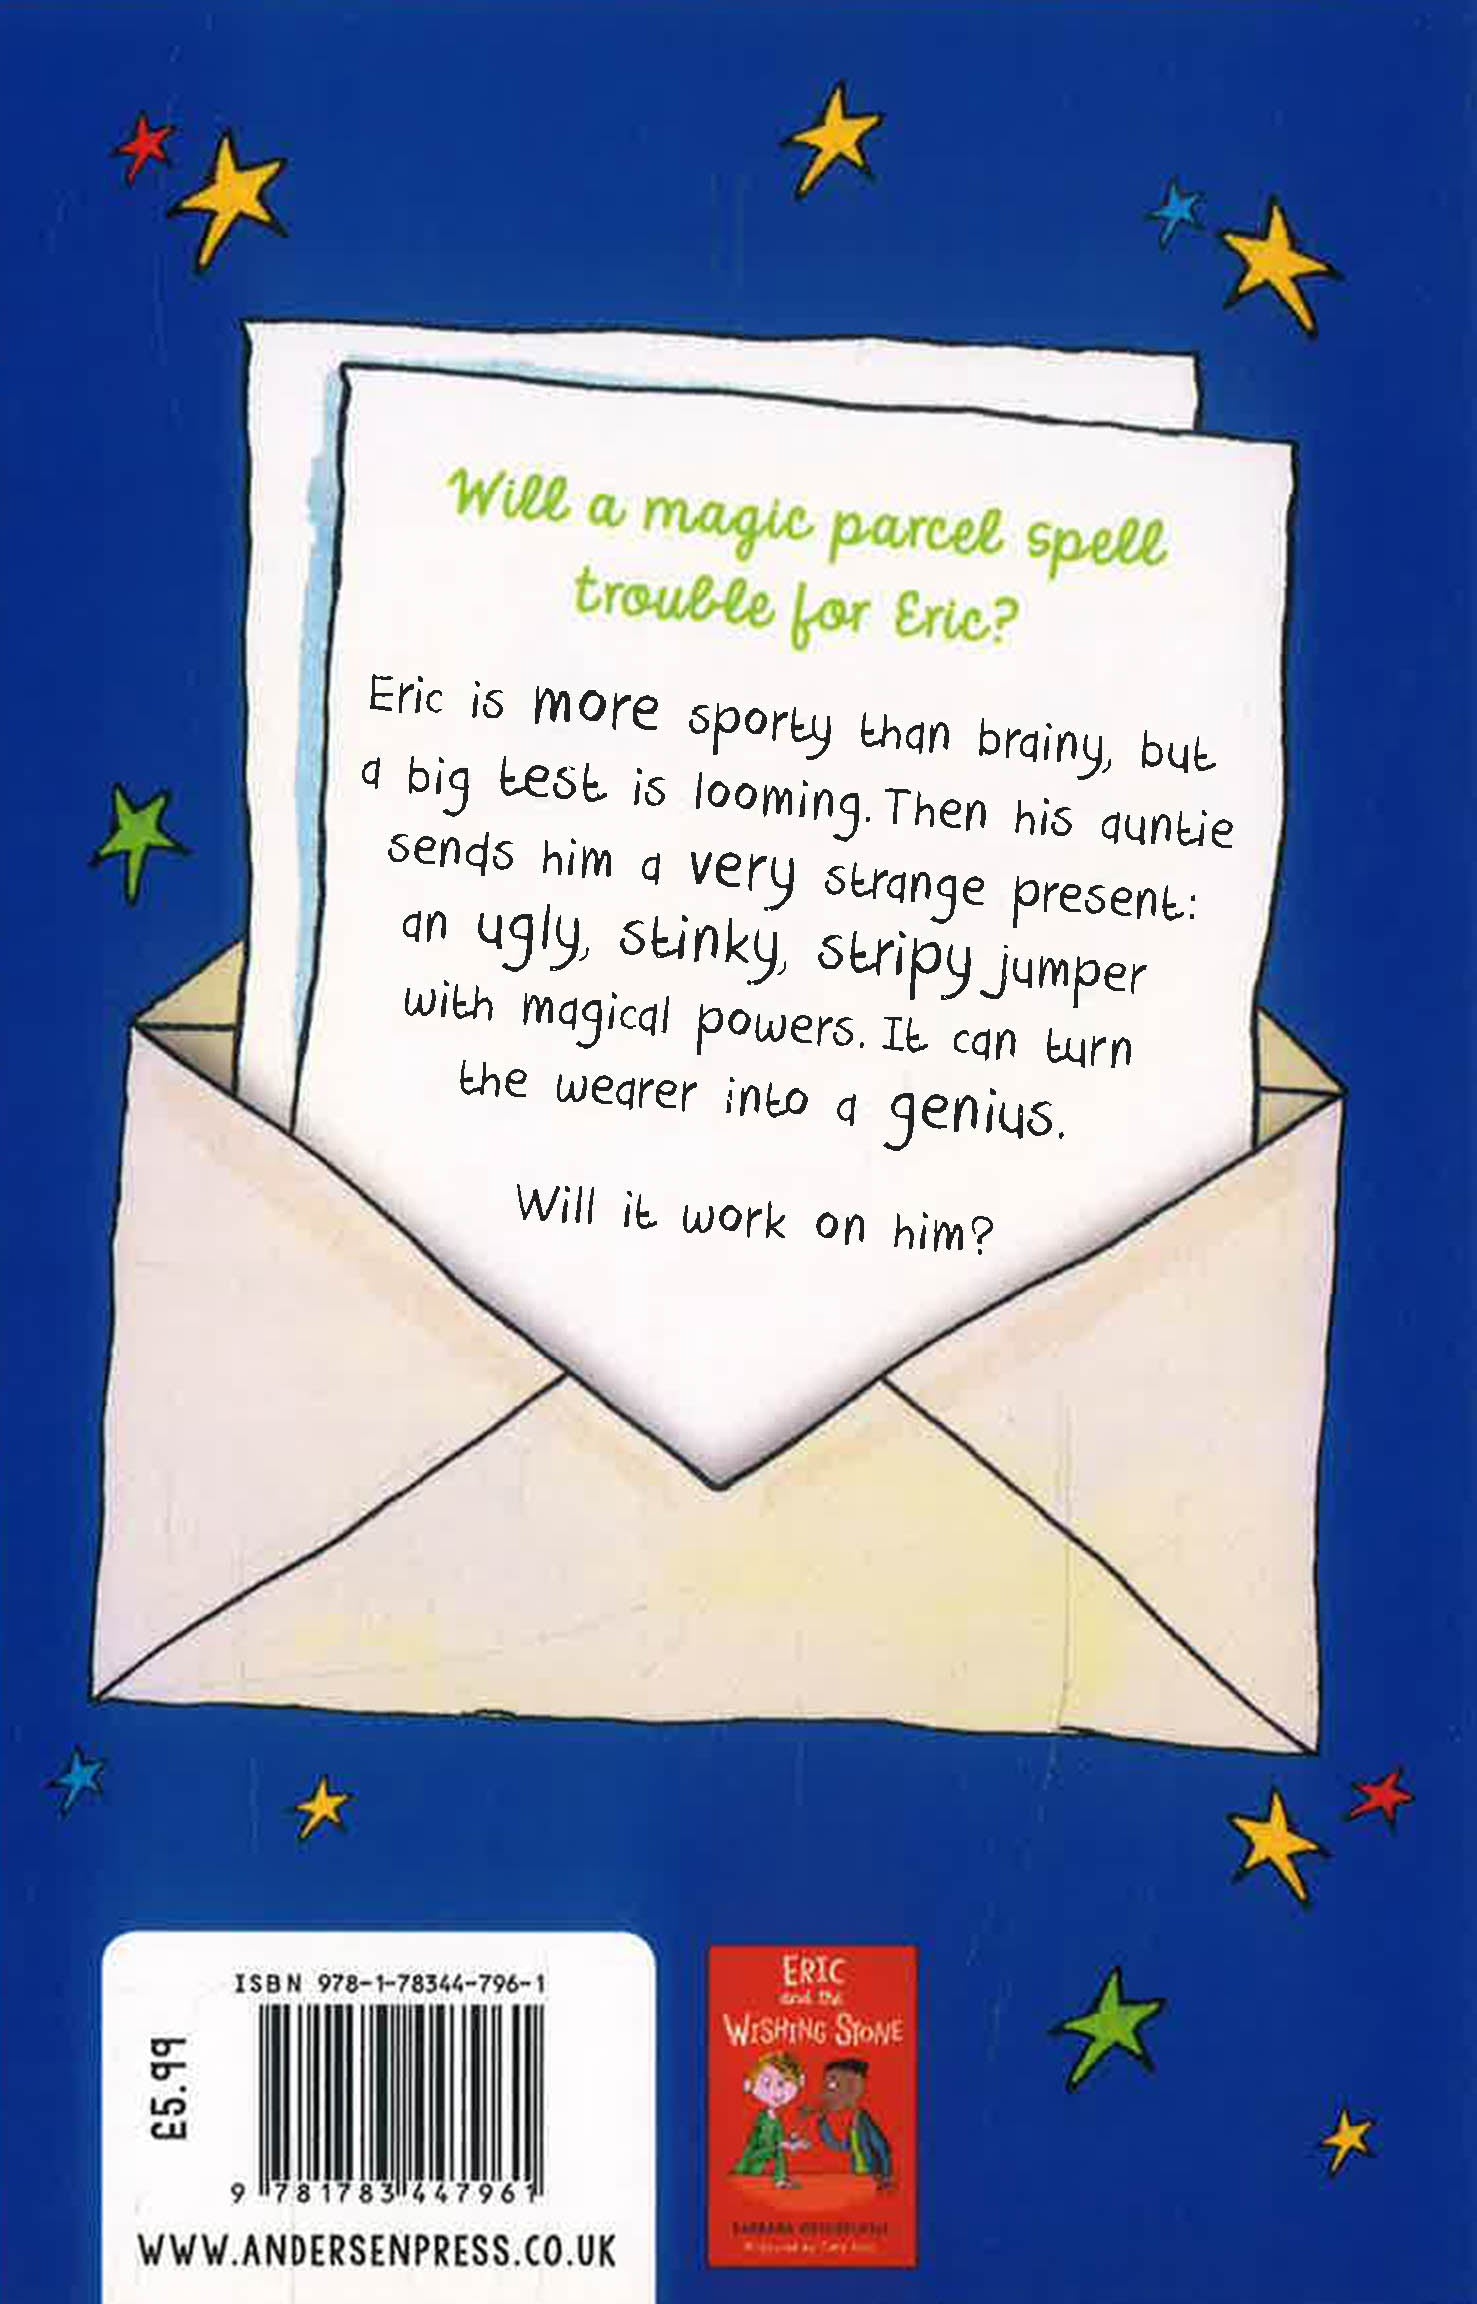 Will a magic parcel spell
trouble for Eric?
Eric is more sporty than brainy, but
a big test is looming. Then his auntie
sends him a very strange present:
an ugly, stinky, stripy jumper
with magical powers. It can turn
the wearer into a genius.
Will it work on him?
ISBN 978-1-78344-796-1
£5.99
9 781783 447961
WWW.ANDERSENPRESS.CO.UK
ERIC
and the
WISHING STONE
BARBARA